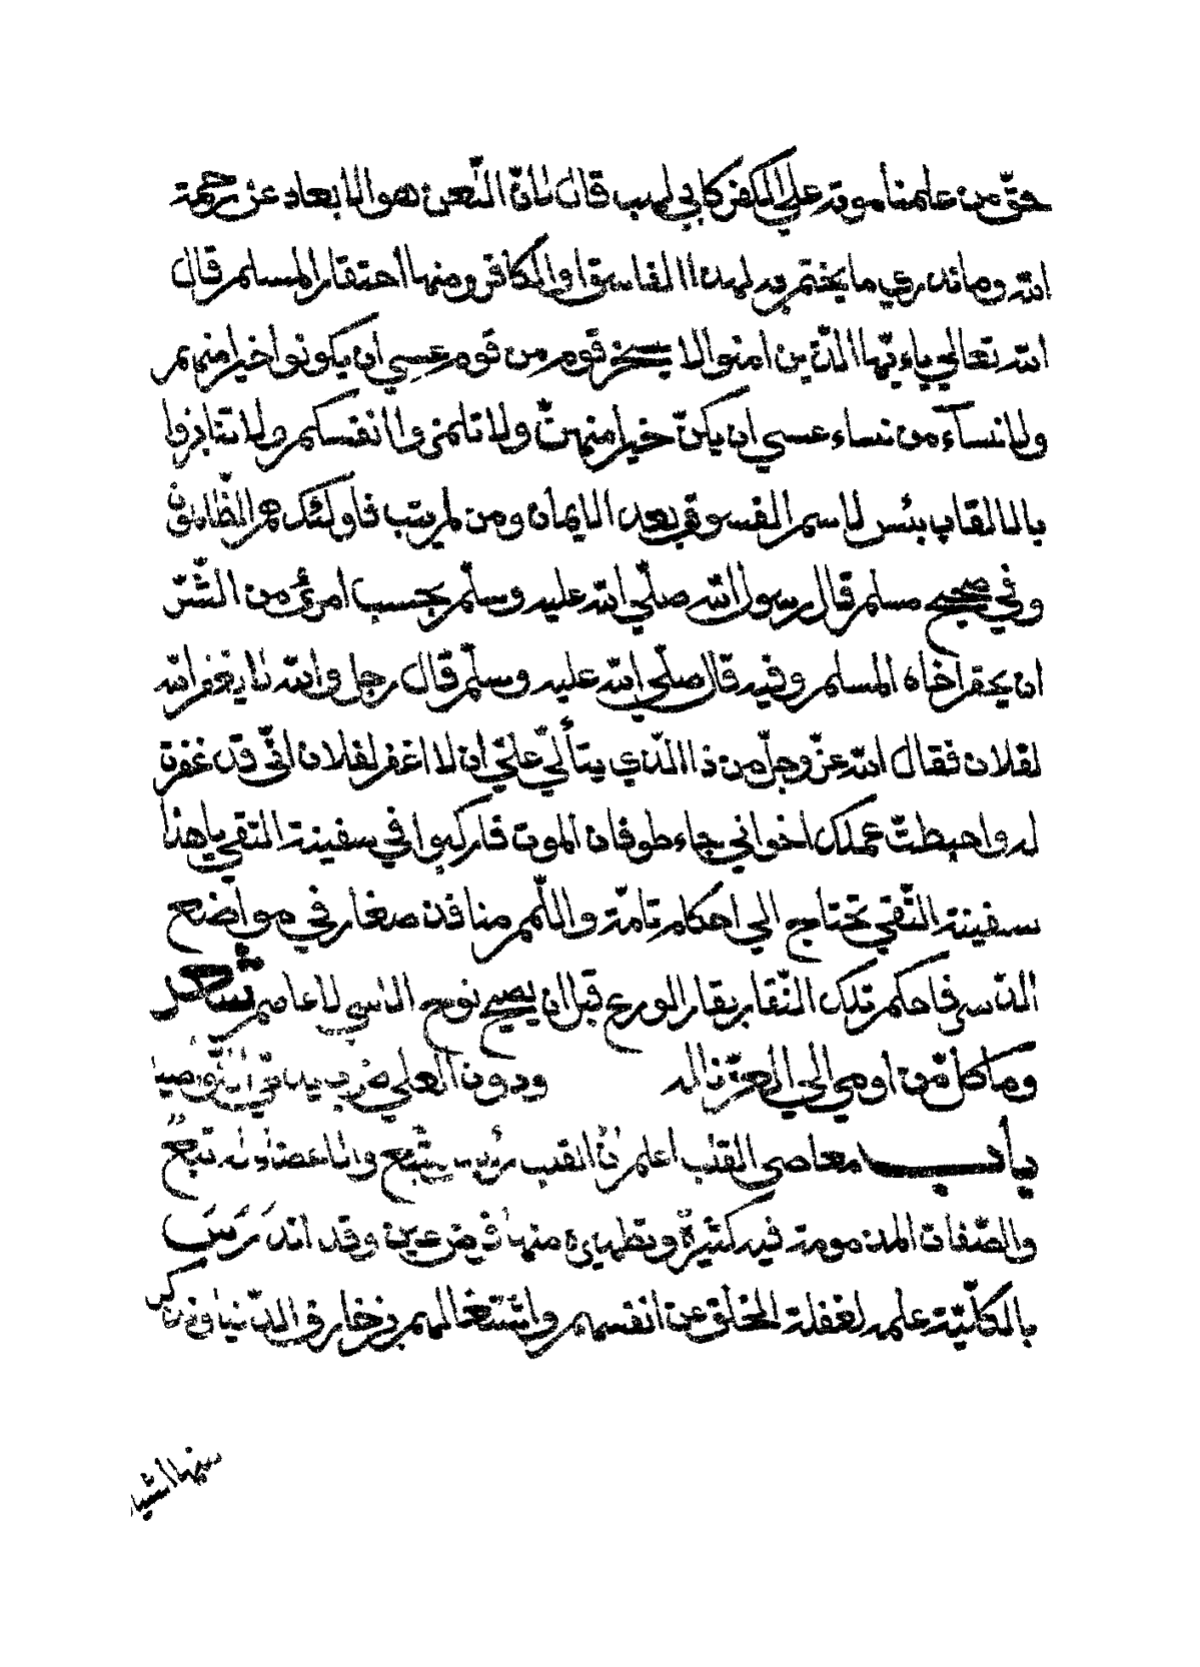 حقّ من علمنا موته علي الكفر كابي لهب قال لانّ اللّعن هو الابعاد عن رحمة
الله وما ندري ما يختم به لهذا الفاسق او الكافر ومنها احتقار المسلم قال
الله تعالي ياءيّها الّذين امنوا لا يسخر قوم من قوم عسي ان يكونوا خيرا منهم
ولا نسآء من نساء عسي ان يكنّ خيرا منهنّ ولا تلمزوا انفسكم ولا تنابزوا
بالالقاب بئس لاسم الفسوق بعد الايمان ومن لم يتب فاولئك هم الظّالمون
وفي صحيح مسلم قال رسول الله صلّي الله عليه وسلّم بحسب امرئ من الشّرّ
ان يحقر اخاه المسلم وفيه قال صلّي الله عليه وسلّم قال رجل والله لا يغفر الله
لفلان فقال الله عزّ وجلّ من ذا الّذي يتألّي عليّ ان لا اغفر لفلان انّي قد غفرت
له واحبطتّ عملك اخواني جاء طوفان الموت فاركبوا في سفينة التقي يا هذا
سفينة التّقي تحتاج الي احكام تامّة واللّمم منافذ صغار في مواضع
الدّسر فاحكم تلك النّقا بقار الورع قبل ان يصيح نوح الاسي لا عاصم
وما كل من اومي الي العزّ ناله ودون العلي ضرب يدمّي النّواصيا
باب معاصى القلب اعلم انّ القلب رئيس متّبع والاعضاء له تبع
والصّفات المذمومة فيه كثيرة وتطهيره منها فرض عين وقد اندَرَسَ
بالكلّيّة علمه لغفلة الخلق عن انفسهم واشتغالهم بزخارف الدّنيا